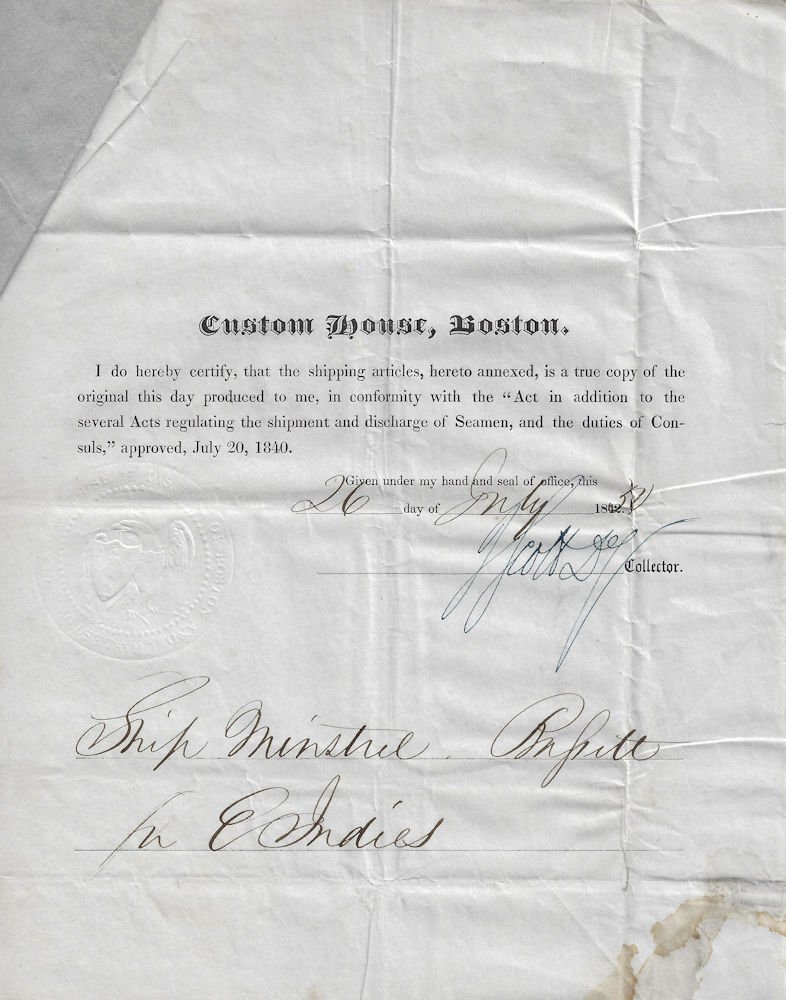 Custom House, Boston.
I do hereby certify, that the shipping articles, hereto annexed, is a true copy of the
original this day produced to me, in conformity with the “Act in addition to the
several Acts regulating the shipment and discharge of Seamen, and the duties of Con-
suls,” approved, July 20, 1840.
Given under my hand and seal of office, this
26 day of July 18
Collector.
Ship Minstrel
for E Indies